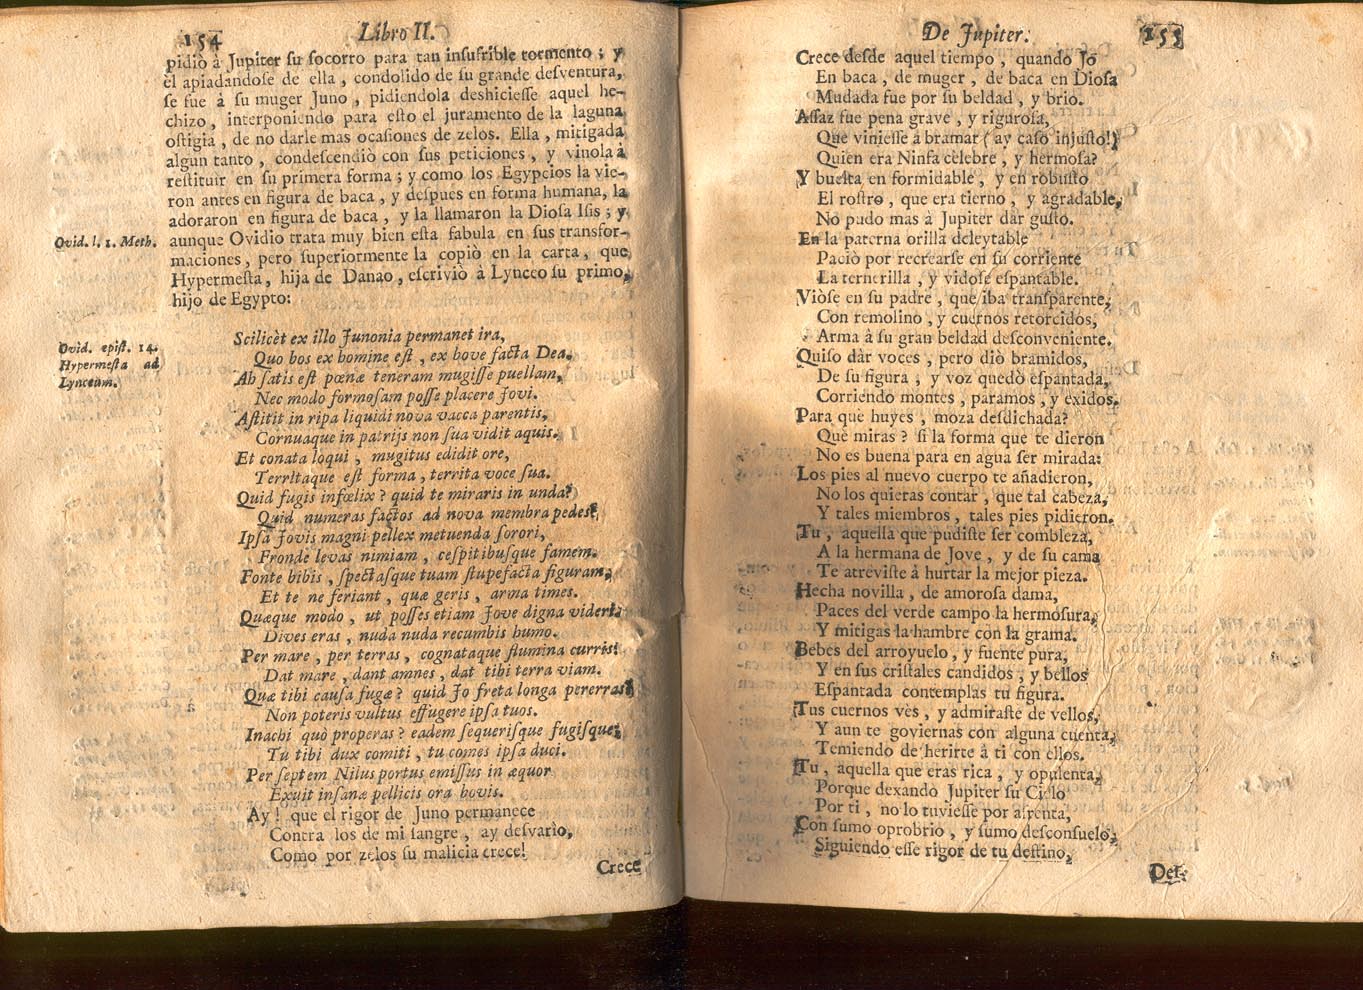 154
Libro II.
pidiò à Jupiter su socorro para tan insufrible tormento ; y
èl apiadandose de ella , condolido de su grande desventura,
se fue à su muger Juno , pidiendola deshiciesse aquel he-
chizo , interponiendo para esto el juramento de la laguna
ostigia , de no darle mas ocasiones de zelos. Ella , mitigada
algun tanto , condescendiò con sus peticiones , y vinola à
restituir en su primera forma ; y como los Egypcios la vie-
ron antes en figura de baca , y despues en forma humana, la
adoraron en figura de baca , y la llamaron la Diosa Isis ; y
Ovid. l. 1. Meth.
aunque Ovidio trata muy bien esta fabula en sus transfor-
maciones, pero superiormente la copiò en la carta, que
Hypermesta, hija de Danao, escriviò à Lynceo su primo,
hijo de Egypto:
Ovid. epist. 14.
Hypermesta ad
Lynceum.
Scilicèt ex illo Junonia permanet ira,
Quo bos ex homine est , ex bove facta Dea.
Ah satis est pœnæ teneram mugisse puellam,
Nec modo formosam posse placere Jovi.
Astitit in ripa liquidi nova vacca parentis,
Cornuaque in patrijs non sua vidit aquis.
Et conata loqui , mugitus edidit ore,
Territaque est forma , territa voce sua.
Quid fugis infœlix ? quid te miraris in unda?
Quid numeras factos ad nova membra pedes?
Ipsa Jovis magni pellex metuenda sorori,
Fronde levas nimiam , cespitibusque famem.
Fonte bibis , spectasque tuam stupefacta figuram,
Et te ne feriant , quæ geris , arma times.
Quæque modo , ut posses etiam Jove digna videri,
Dives eras , nuda nuda recumbis humo.
Per mare , per terras , cognataque flumina curris:
Dat mare , dant amnes , dat tibi terra viam.
Quæ tibi causa fugæ ? quid Jo freta longa pererras?
Non poteris vultus effugere ipsa tuos.
Inachi quò properas ? eadem sequerisque fugisque;
Tu tibi dux comiti , tu comes ipsa duci.
Per septem Nilus portus emissus in æquor
Exuit insanæ pellicis ora bovis.
Ay ! que el rigor de Juno permanece
Contra los de mi sangre , ay desvarìo,
Como por zelos su malicia crece!
Crece
De Jupiter.
155
Crece desde aquel tiempo , quando Jo
En baca , de muger , de baca en Diosa
Mudada fue por su beldad , y brio.
Assaz fue pena grave , y rigurosa,
Que viniesse à bramar ( ay caso injusto!)
Quien era Ninfa cèlebre , y hermosa?
Y buelta en formidable , y en robusto
El rostro , que era tierno , y agradable,
No pudo mas à Jupiter dar gusto.
En la paterna orilla deleytable
Paciò por recrearse en su corriente
La ternerilla , y vidose espantable.
Viòse en su padre , que iba transparente,
Con remolino , y cuernos retorcidos,
Arma à su gran beldad desconveniente.
Quiso dàr voces , pero diò bramidos,
De su figura , y voz quedò espantada,
Corriendo montes , paramos , y exidos.
Para què huyes , moza desdichada?
Què miras ? si la forma que te dieron
No es buena para en agua ser mirada:
Los pies al nuevo cuerpo te añadieron,
No los quieras contar , que tal cabeza,
Y tales miembros , tales pies pidieron.
Tu , aquella que pudiste ser combleza,
A la hermana de Jove , y de su cama
Te atreviste à hurtar la mejor pieza.
Hecha novilla , de amorosa dama,
Paces del verde campo la hermosura,
Y mitigas la hambre con la grama.
Bebes del arroyuelo , y fuente pura,
Y en sus cristales candidos , y bellos
Espantada contemplas tu figura.
Tus cuernos vès , y admiraste de vellos,
Y aun te goviernas con alguna cuenta,
Temiendo de herirte à ti con ellos.
Tu , aquella que eras rica , y opulenta,
Porque dexando Jupiter su Cielo
Por ti , no lo tuviesse por afrenta,
Con sumo oprobrio , y sumo desconsuelo,
Siguiendo esse rigor de tu destino,
Des-